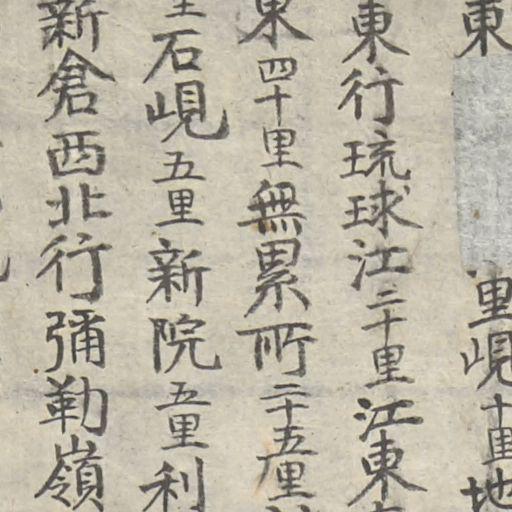 東里峴十里地
東行琉球江二十里江東
東四十里無累所二十五里
里石峴五里新院五里利
新倉西北行彌勒嶺